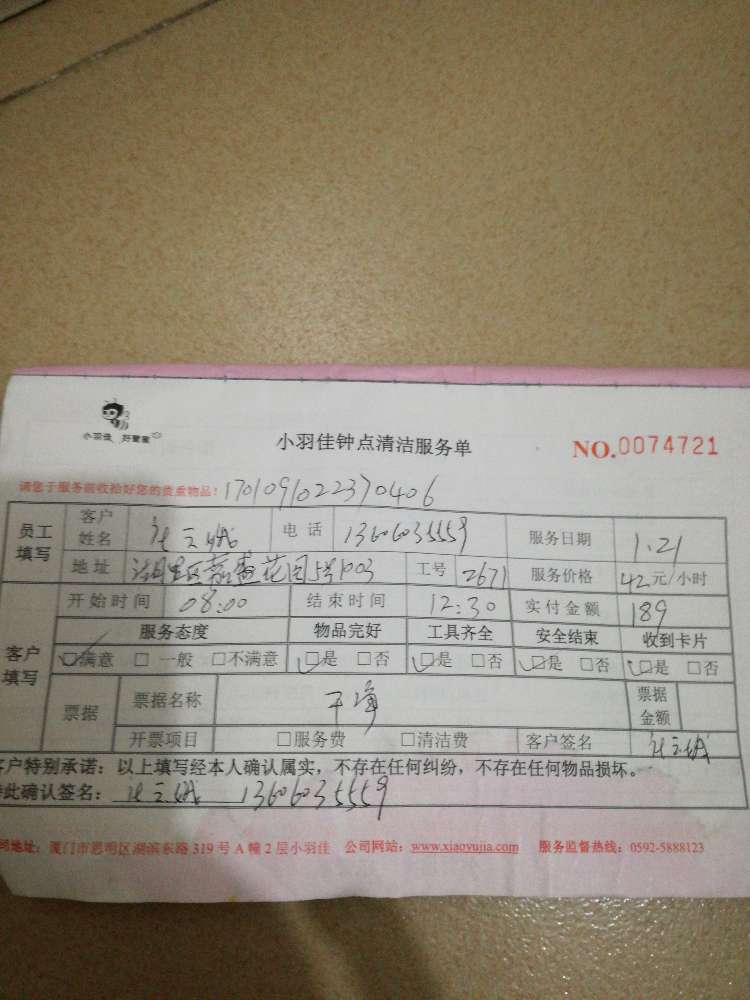 小羽佳 好蜜蜜
小羽佳钟点清洁服务单
NO.0074721
请您于服务前收拾好您的贵重物品! 1701091022370406
员工填写 客户姓名 电话 13606035559 服务日期 1.21
地址 花园5号1003 工号 2671 服务价格 42元/小时
客户填写 开始时间 08:00 结束时间 12:30 实付金额 189
服务态度 物品完好 工具齐全 安全结束 收到卡片
☑满意 □一般 □不满意 ☑是 □否 ☑是 □否 ☑是 □否 ☑是 □否
票据 票据名称 干净 票据金额
开票项目 □服务费 □清洁费 客户签名
客户特别承诺：以上填写经本人确认属实，不存在任何纠纷，不存在任何物品损坏。
特此确认签名： 13606035559
司地址：厦门市思明区湖滨东路 319 号 A 幢 2 层小羽佳 公司网站：www.xiaoyujia.com 服务监督热线：0592-5888123